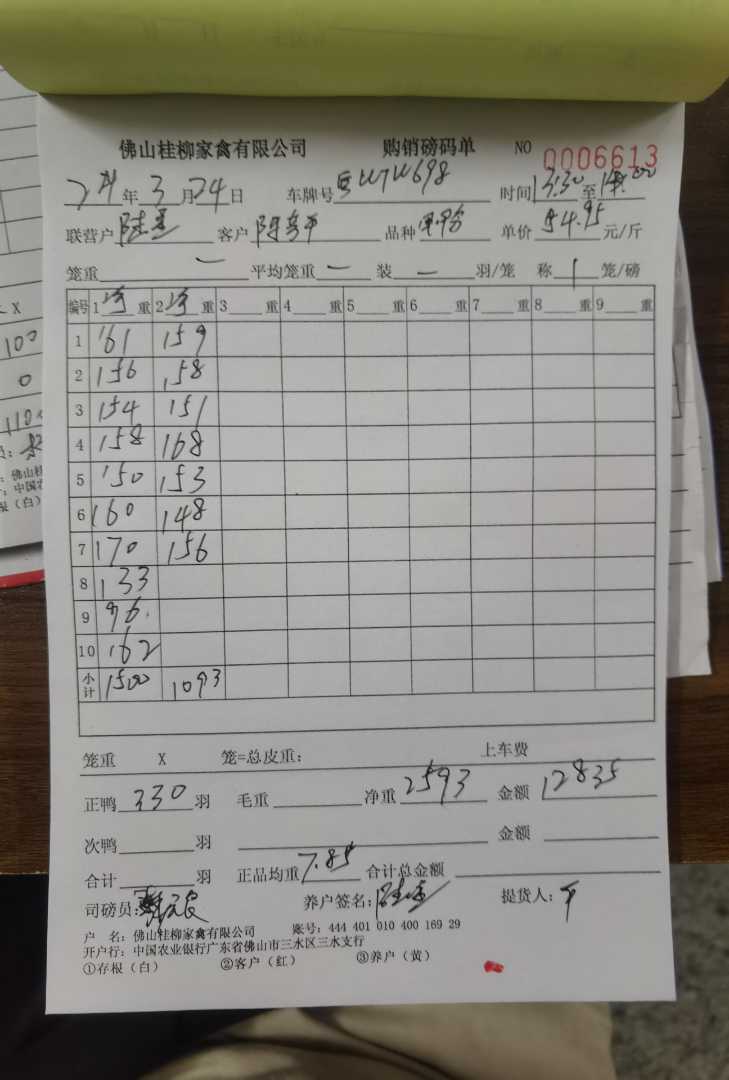 佛山桂柳家禽有限公司 购销磅码单 NO 0006613
24年3月24日 车牌号 W7W698 时间13:30至
联营户 客户 品种 单价 4.95 元/斤
笼重 — 平均笼重 — 装 — 羽/笼 称 1 笼/磅
编号 1 净 重 2 净 重 3 重 4 重 5 重 6 重 7 重 8 重 9 重
1 161 159
2 156 158
3 154 151
4 158 168
5 150 153
6 160 148
7 170 156
8 133
9 96
10 162
小计 1500 1093
笼重 X 笼=总皮重: 上车费
正鸭 330 羽 毛重 净重 2593 金额 12835
次鸭 羽 金额
合计 羽 正品均重 7.85 合计总金额
司磅员: 养户签名: 提货人:
户 名: 佛山桂柳家禽有限公司 账号: 444 401 010 400 169 29
开户行: 中国农业银行广东省佛山市三水区三水支行
①存根（白） ②客户（红） ③养户（黄）